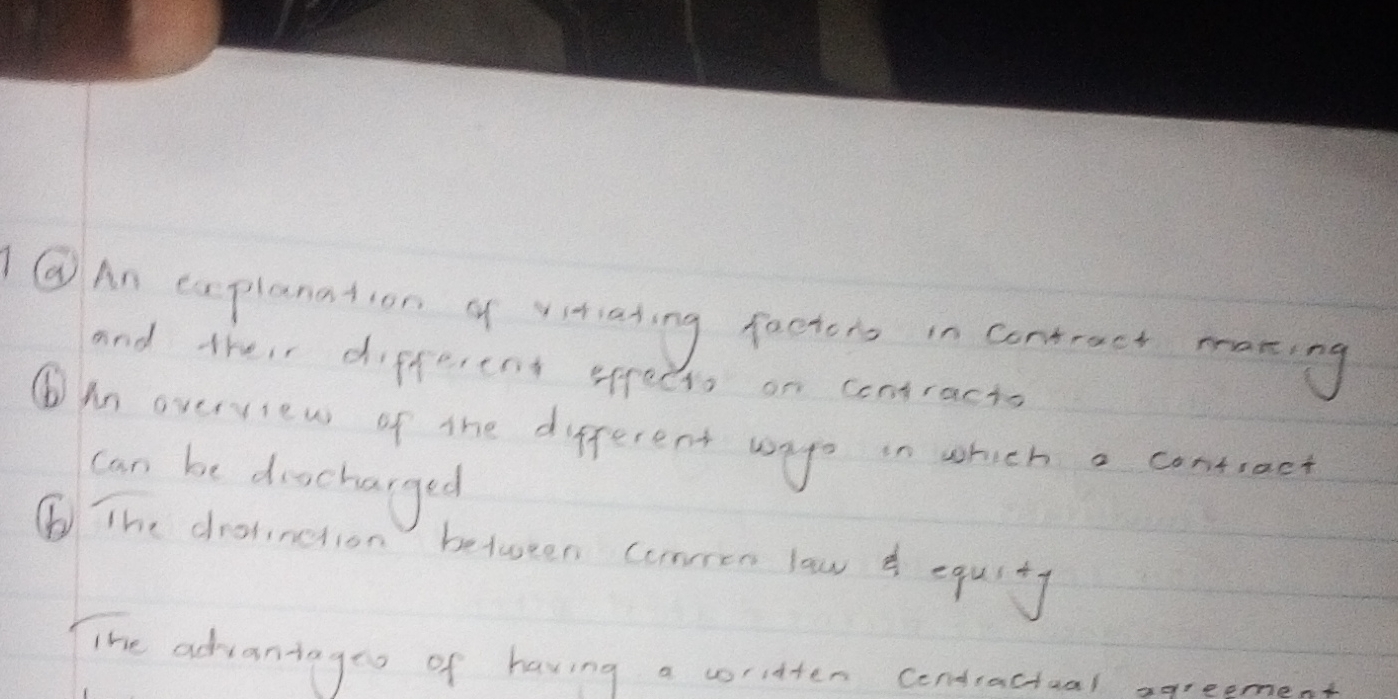 1 (a) An explanation of vitiating factors in contract making
and their different effects on contracts
(b) An overview of the different ways in which a contract
can be discharged
(b) The distinction between common law & equity
The advantages of having a written contractual agreement